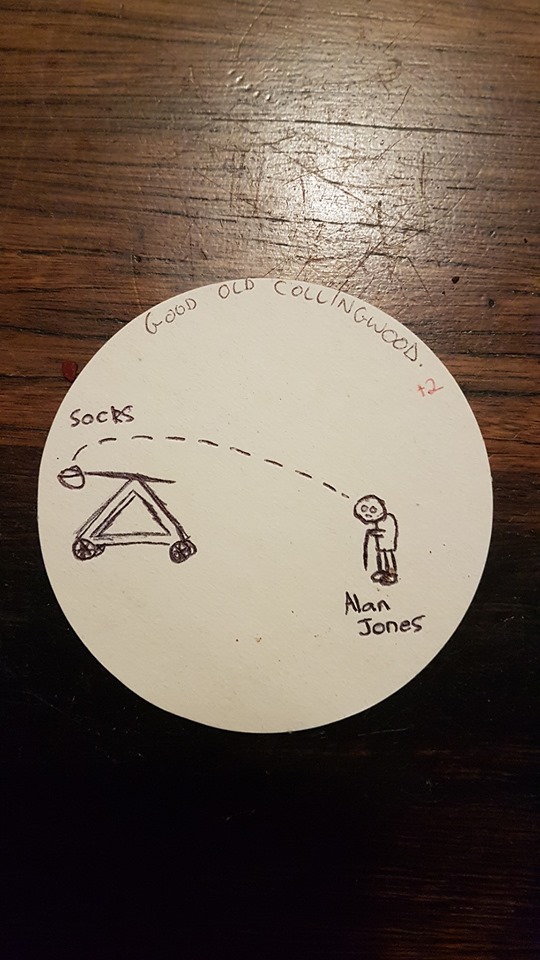 GOOD OLD COLLINGWOOD.
+2
Socks
Alan
Jones